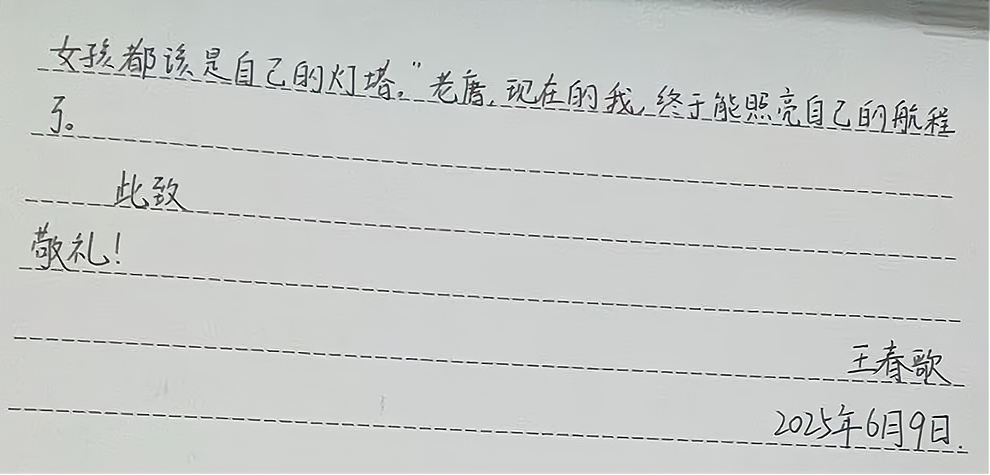 女孩都该是自己的灯塔。”老唐,现在的我,终于能照亮自己的航程
了。
此致
敬礼!
王春歌
2025年6月9日.